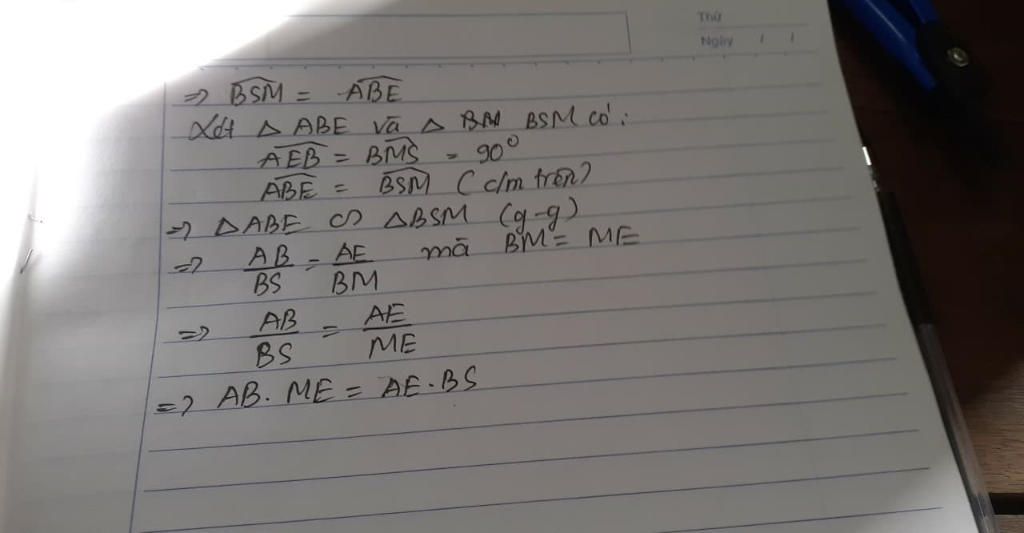 Thứ
Ngày / /
=> BSM = ABE
Xét △ ABE và △ BM BSM có:
AEB = BMS = 90°
ABE = BSM (c/m trên)
=> △ABE ∽ △BSM (g-g)
=> AB/BS = AE/BM mà BM = ME
=> AB/BS = AE/ME
=> AB. ME = AE. BS